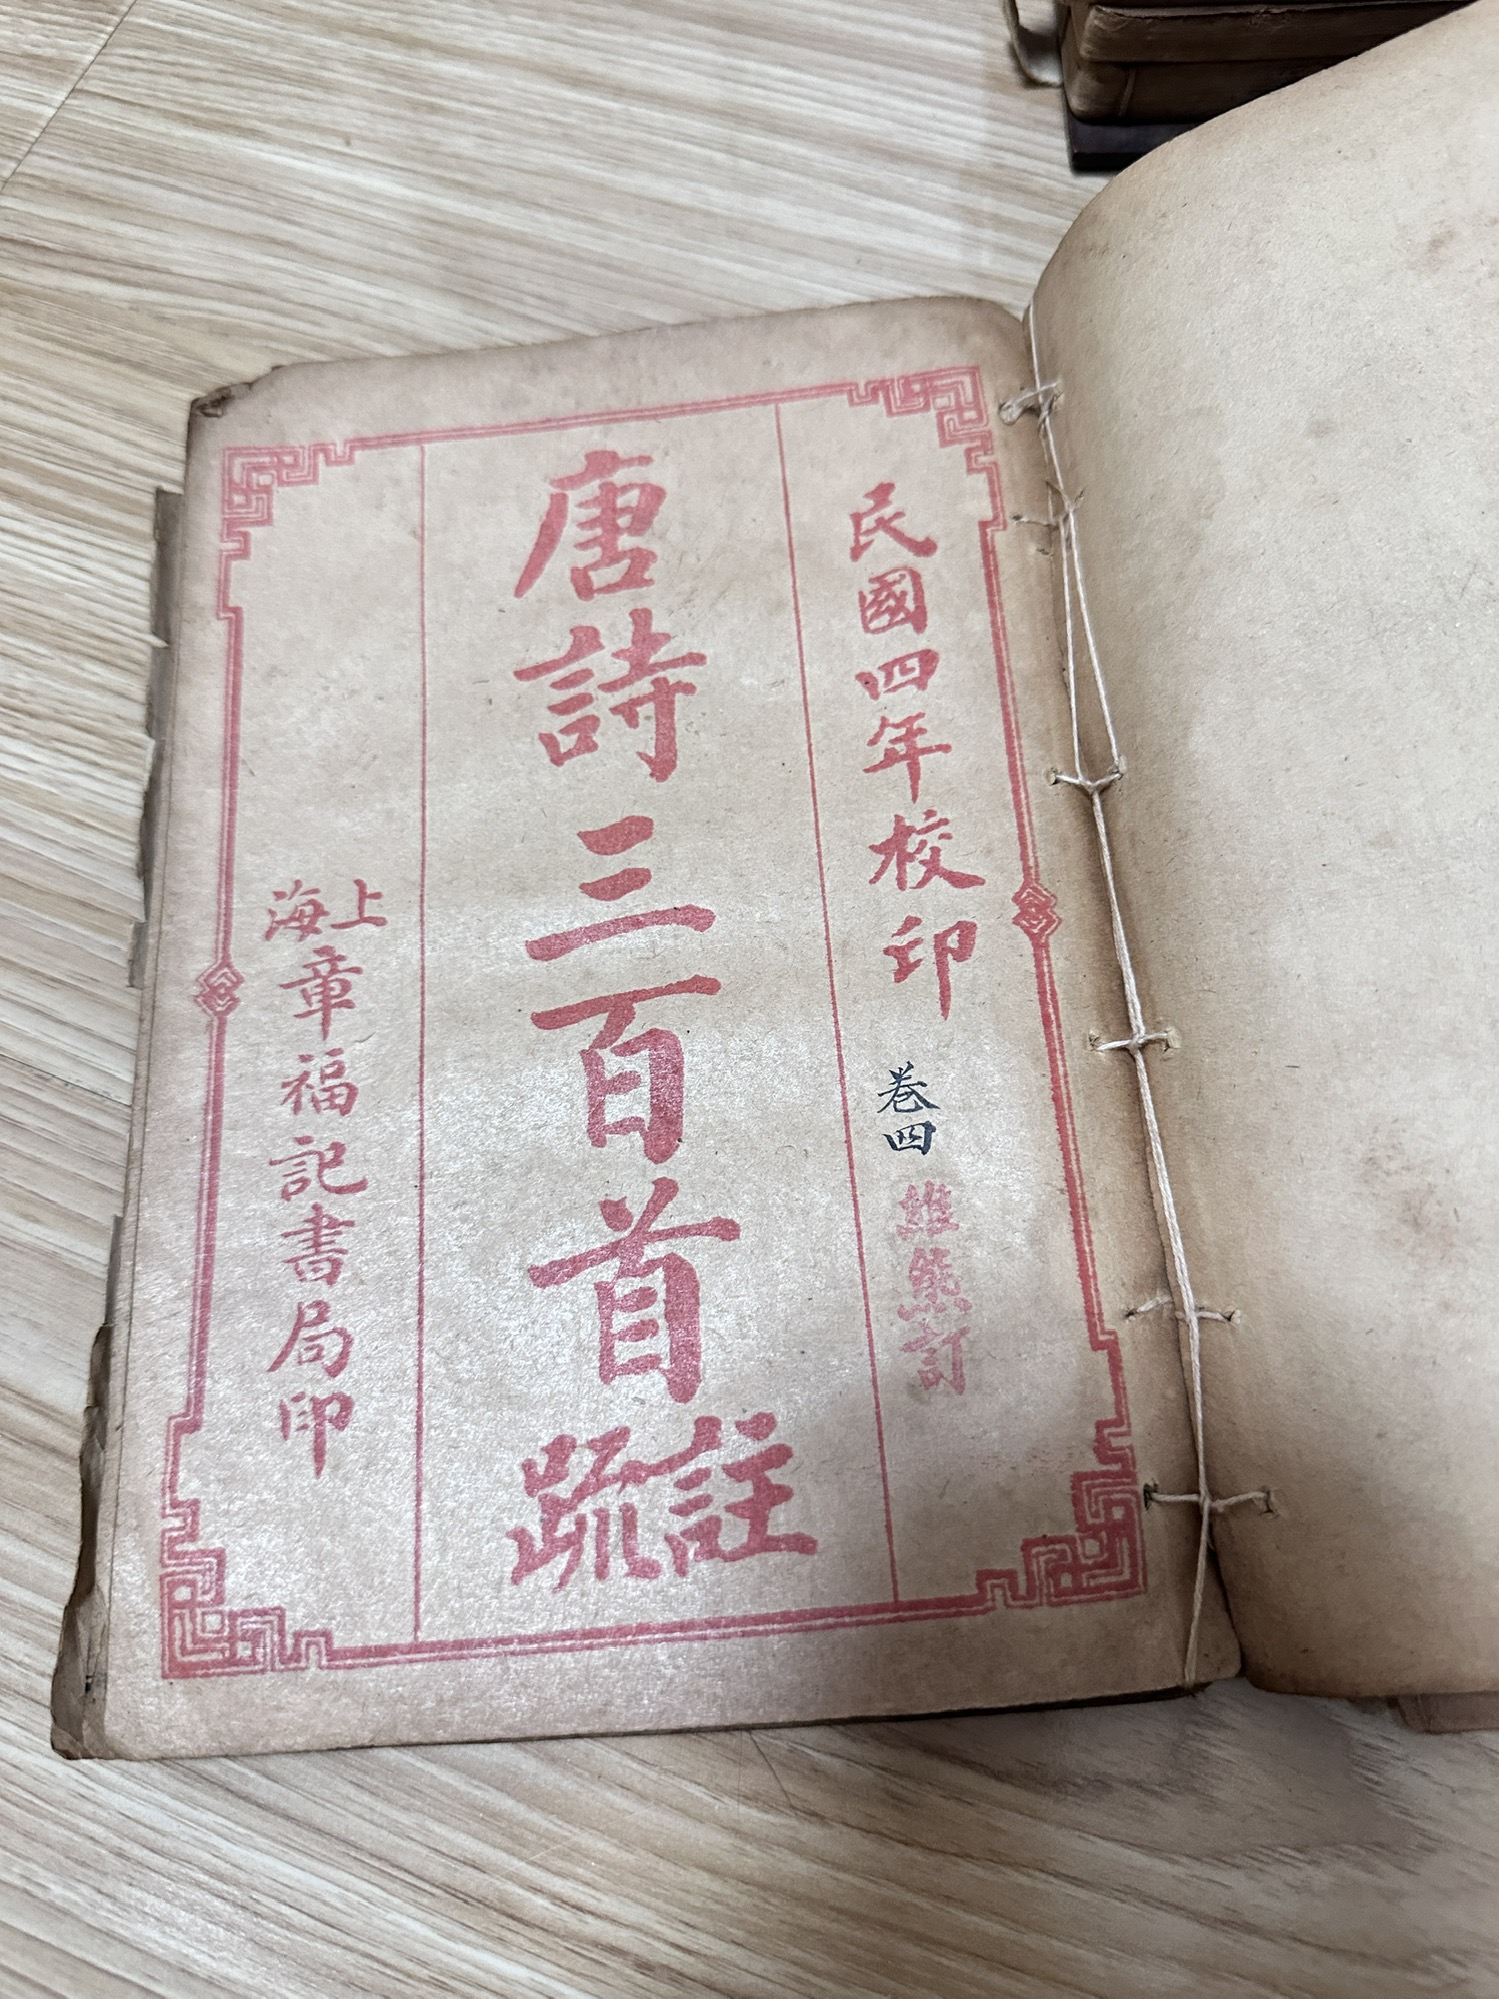 民國四年校印
卷四
維熊訂
唐詩三百首註疏
上海章福記書局印